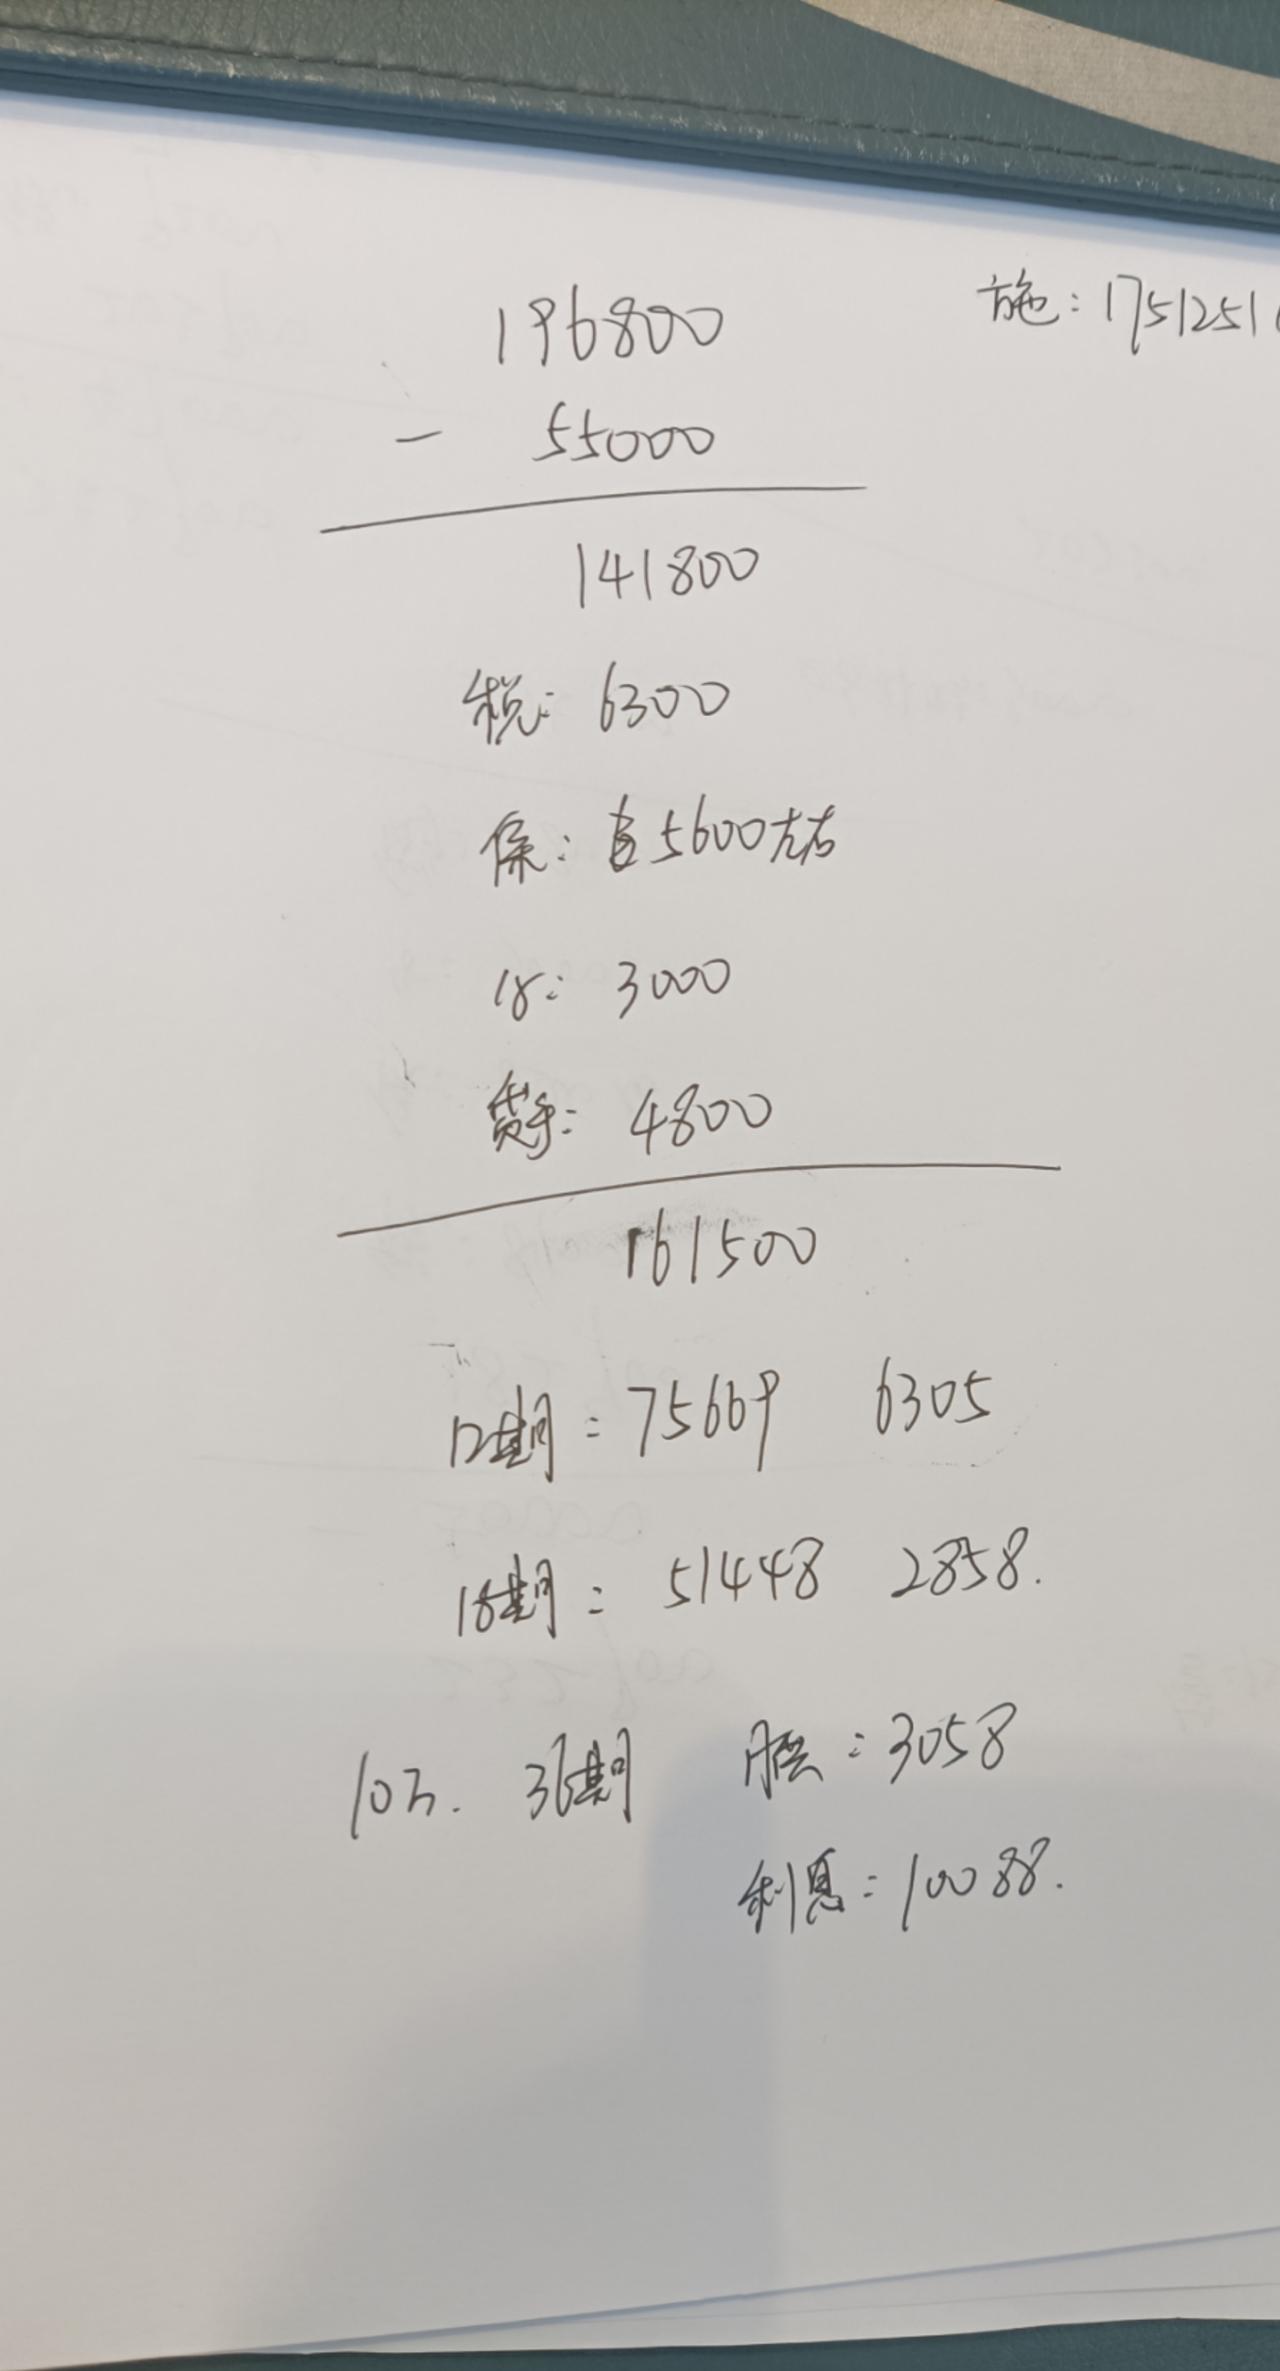 196800
施：1751251
- 55000
141800
税：6300
保：5600左右
3000
4800
161500
12期：75669 6305
18期：51448 2858.
10万. 36期 月供：3058
利息：10088.